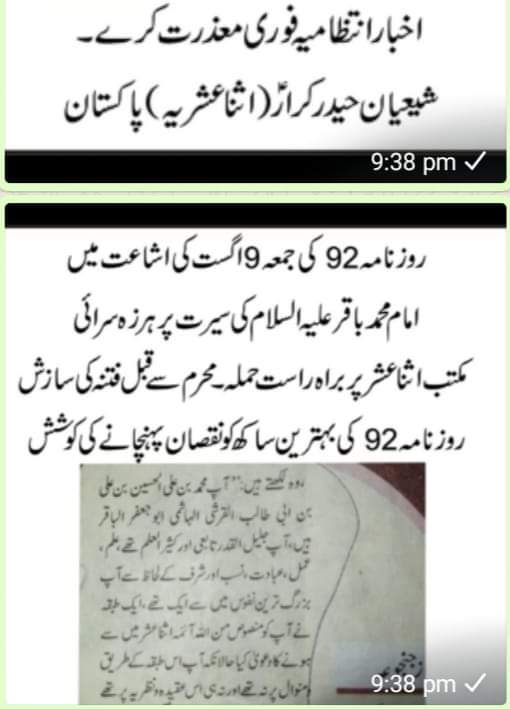 اخبار انتظامیہ فوری معذرت کرے۔
شیعیان حیدر کرارؑ (اثنا عشریہ) پاکستان
9:38 pm
روزنامہ 92 کی جمعہ 9 اگست کی اشاعت میں
امام محمد باقر علیہ السلام کی سیرت پر ہرزہ سرائی
مکتب اثنا عشر پر براہ راست حملہ۔ محرم سے قبل فتنہ کی سازش
روزنامہ 92 کی بہترین ساکھ کو نقصان پہنچانے کی کوشش
وہ لکھتے ہیں: "آپ محمد بن علی الحسین بن علی
بن ابی طالب القرشی الہاشمی ابو جعفر الباقر
ہیں، آپ جلیل القدر تابعی اور کثیر العلم تھے، علم،
عمل، عبادت، نسب اور شرف کے لحاظ سے آپ
بزرگ ترین نفوس میں سے ایک تھے، ایک طبقہ
نے آپ کو منصوص من اللہ آئمہ اثنا عشر میں سے
ہونے کا دعویٰ کیا حالانکہ آپ اس طبقہ کے طریق
و منوال پر نہ تھے اور نہ ہی اس عقیدہ و نظریہ پر تھے
9:38 pm